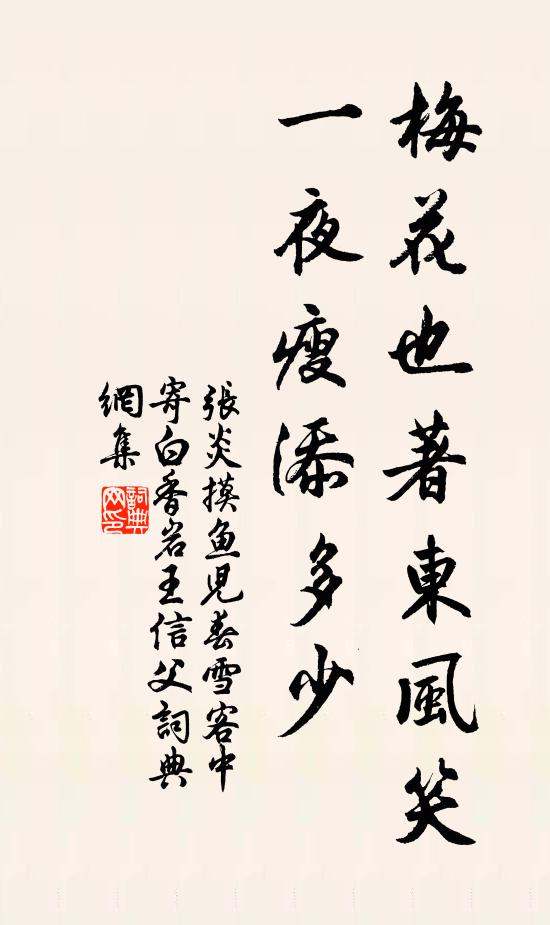 梅花也著東風笑
一夜瘦添多少
張炎摸魚兒春雪客中
寄白香岩王信父詞典
網集
詞典網印